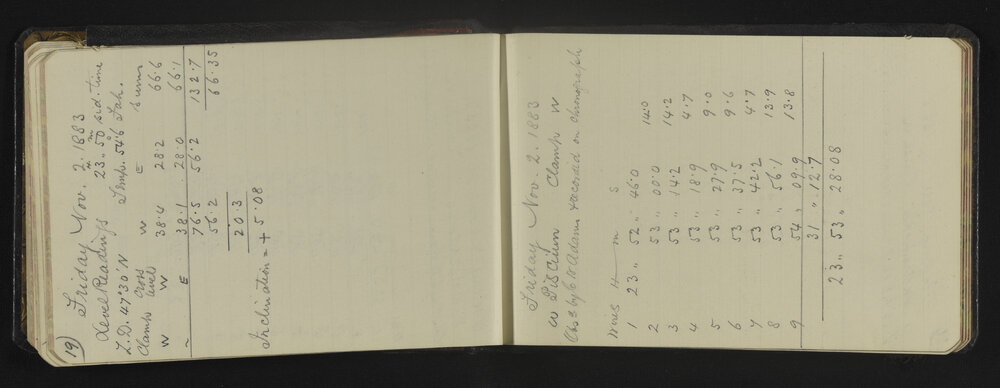 19)
Friday Nov. 2. 1883
Level Readings 23h 50m sid. time
Z. D. 47°30' N Temp. 54°.6 Fah.
Clamp Cross level W E sums
W W 38.4 28.2 66.6
~ E 38.1 28.0 66.1
76.5 56.2 132.7
56.2 66.35
20.3
Inclination = + 5.08
Friday Nov. 2. 1883
ω Piscium Clamp W
Obsd by C W Adams & recorded on Chronograph
Wires H m s
1 23 " 52 " 46.0 14.0
2 53 " 00.0 14.2
3 53 " 14.2 4.7
4 53 " 18.9 9.0
5 53 " 27.9 9.6
6 53 " 37.5 4.7
7 53 " 42.2 13.9
8 53 " 56.1 13.8
9 54 " 09.9
31 " 12.7
23 " 53 " 28.08